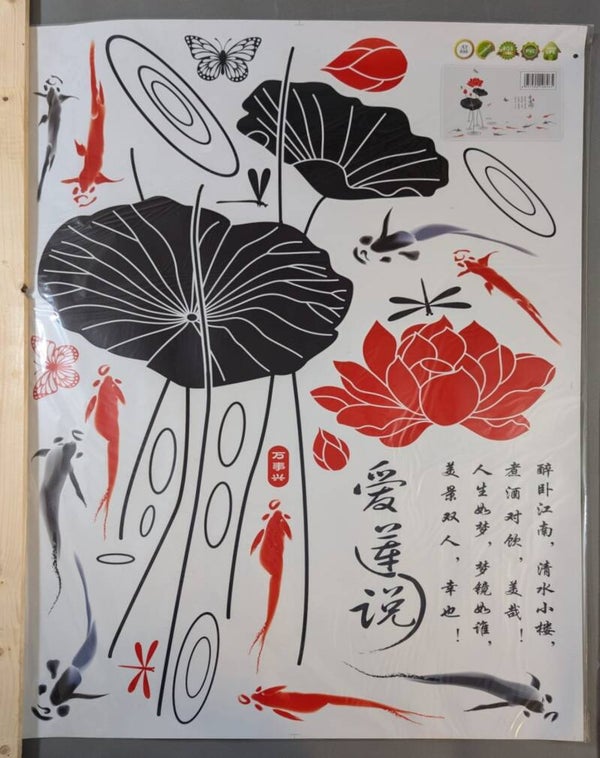 万事兴
爱莲说
醉卧江南，清水小楼，
煮酒对饮，美哉！
人生如梦，梦镜如谁，
美景双人，幸也！